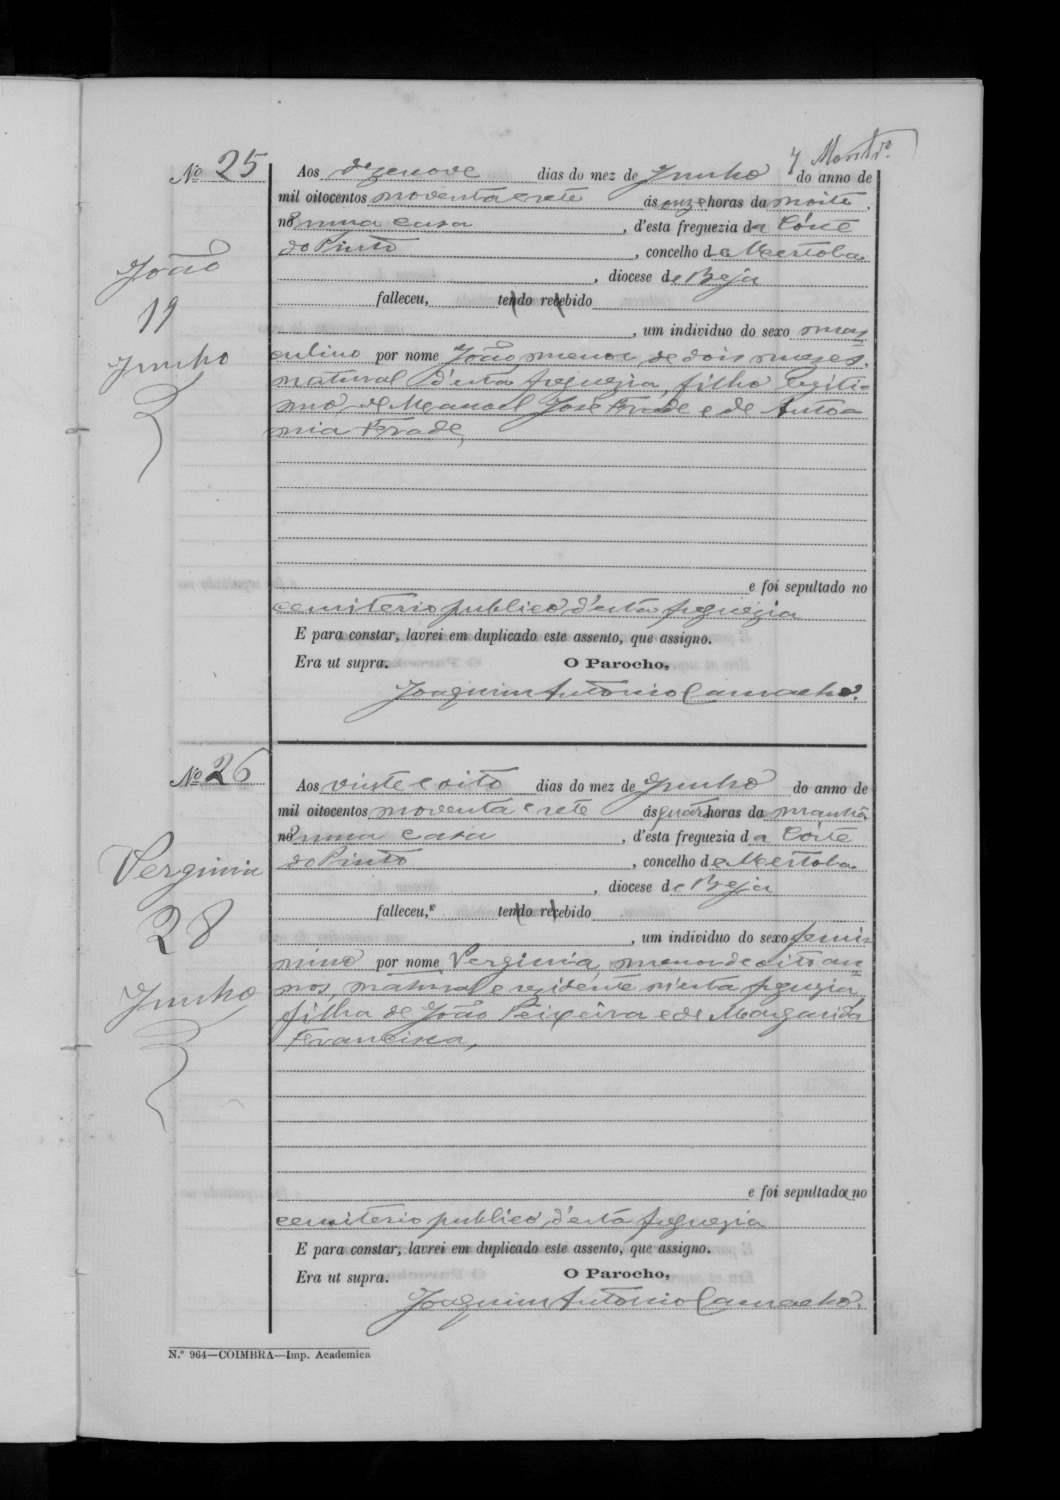 7 Montrº.
Nº 25
Aos dezenove dias do mez de Junho do anno de
mil oitocentos noventa e sete ás onze horas da noite,
nuna casa, d'esta freguezia da Côrte
do Pinto, concelho de Mertola
, diocese de Beja
falleceu, tendo recebido
, um individuo do sexo mas
culino por nome João, menor, de dois mezes,
natural d'esta freguezia, filho legiti-
mo, de Manoel José Frade e de Anto
nia Frade,
e foi sepultado no
cemiterio publico d'esta freguezia
E para constar, lavrei em duplicado este assento, que assigno.
Era ut supra. O Parocho,
Joaquim Antonio Camacho.
João
19
Junho
Nº 26
Aos vinte e oito dias do mez de Junho do anno de
mil oitocentos noventa e sete ás quatro horas da manhã
numa casa, d'esta freguezia da Côrte
do Pinto, concelho de Mertola
, diocese de Beja
falleceu, tendo recebido
, um individuo do sexo femi
nino por nome Verginia, menor de oito an
nos, natural e rezidente n'esta freguezia
filha de João Peixeira e de Margarida
Francisca,
e foi sepultada no
cemiterio publico d'esta freguezia
E para constar, lavrei em duplicado este assento, que assigno.
Era ut supra. O Parocho,
Joaquim Antonio Camacho.
Verginia
28
Junho
N.º 964—COIMBRA—Imp. Academica